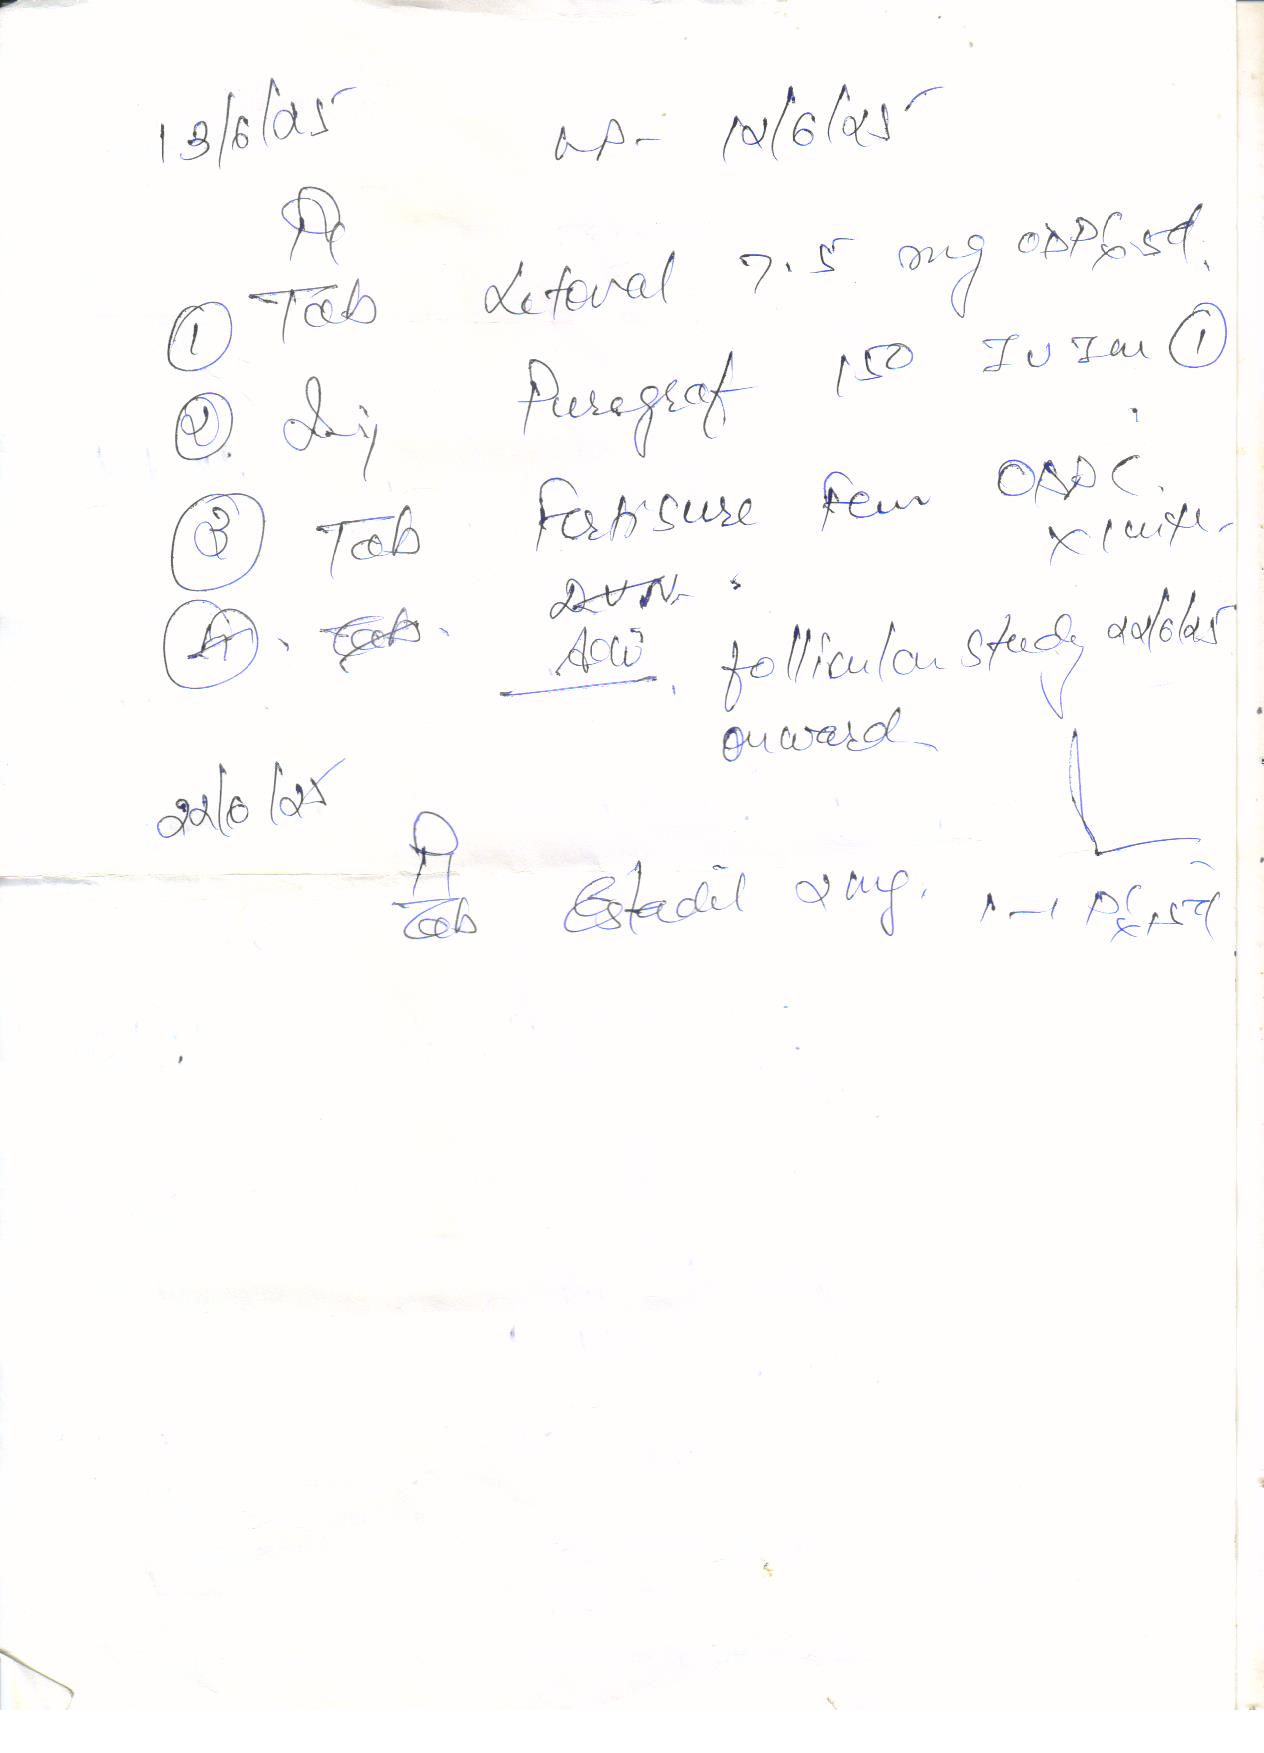 13/6/25 LMP- 12/6/25
Rx
① Tab Letoval 7.5 mg ODPC x 5d.
② Inj Puregraf 150 IU IM ①
③ Tab Fertisure Fem ODPC.
x 1 mth.
④. Tab.
Adv. follicular study 22/6/25
onward
22/6/25
Rx
Tab Estadil 2 mg. 1-1 PC x 5d